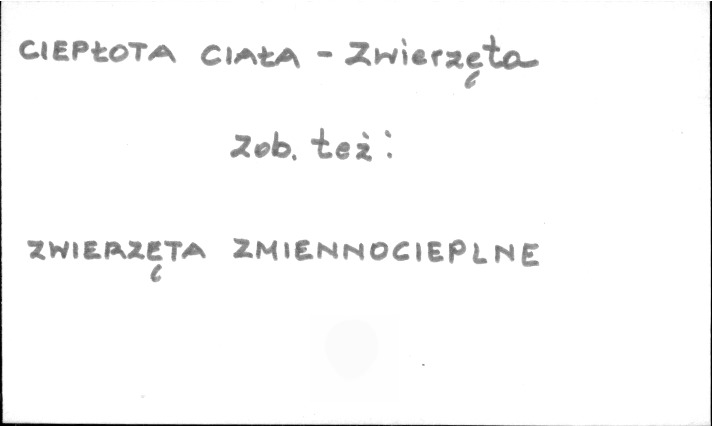 CIEPŁOTA CIAŁA - Zwierzęta
Zob. też:
ZWIERZĘTA ZMIENNOCIEPLNE